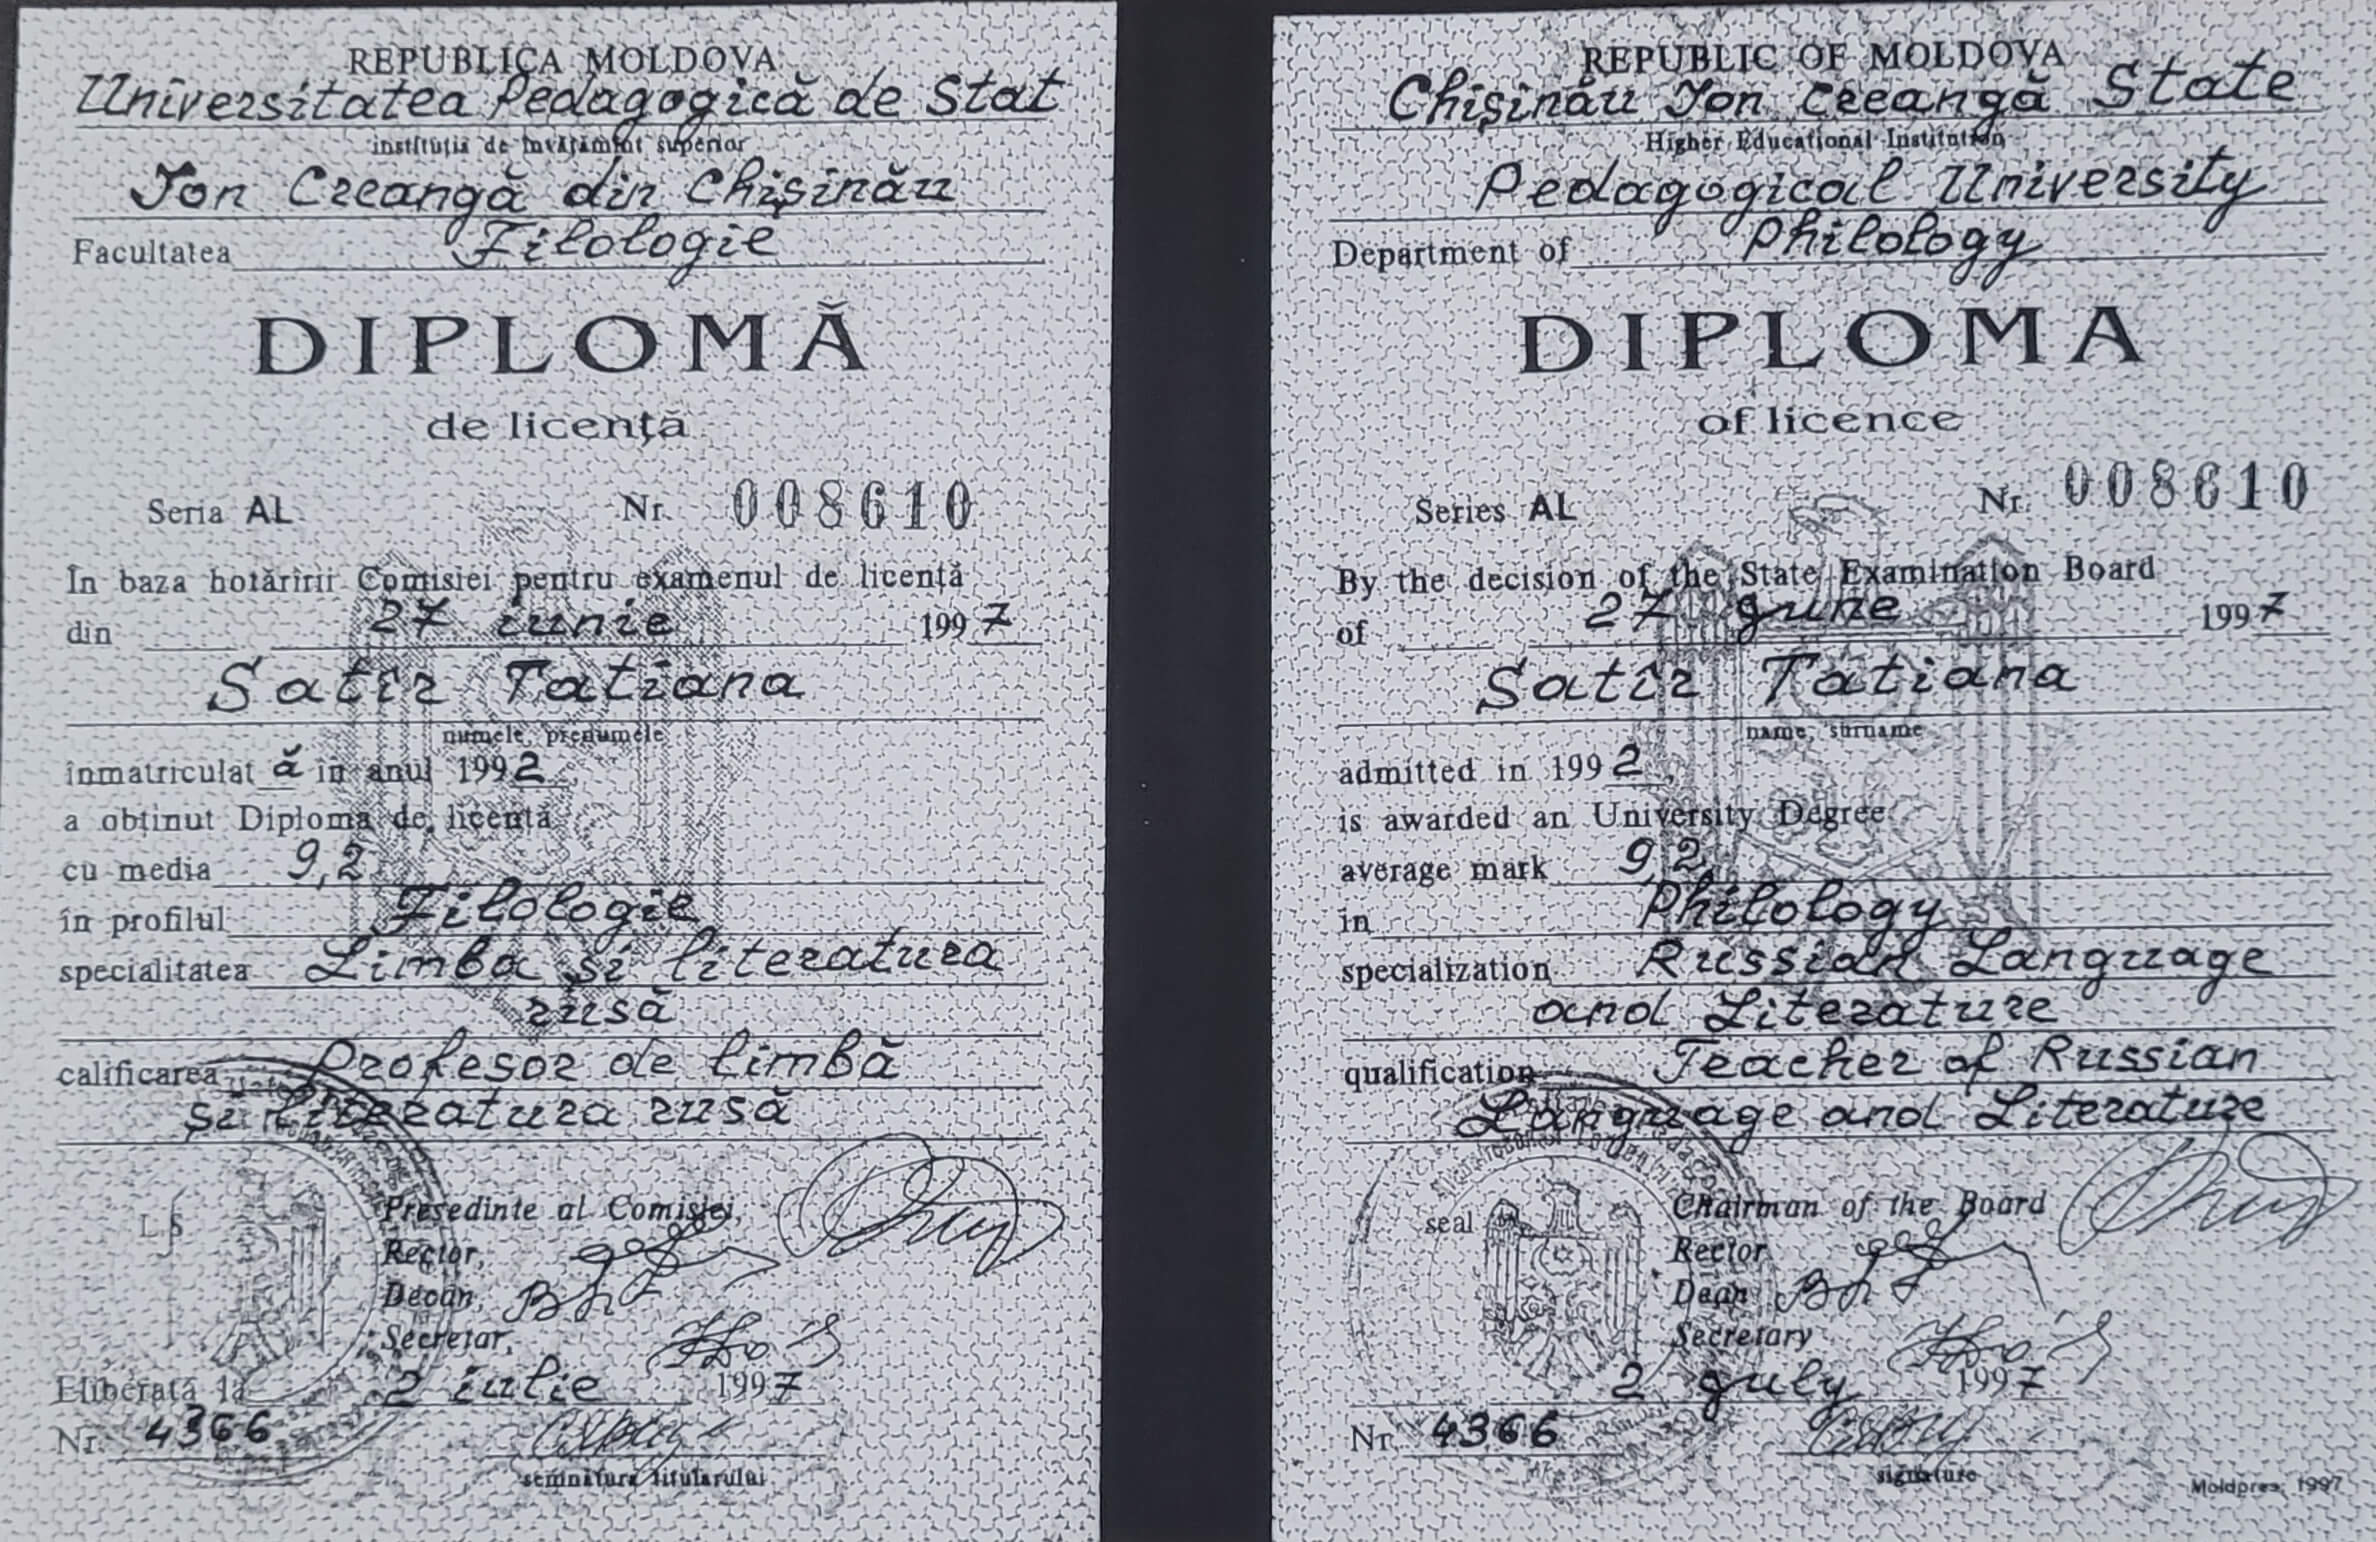 REPUBLICA MOLDOVA
Universitatea Pedagogică de Stat
instituţia de învăţămînt superior
Ion Creangă din Chişinău
Facultatea Filologie
DIPLOMĂ
de licenţă
Seria AL Nr. 008610
În baza hotărîrii Comisiei pentru examenul de licenţă
din 27 iunie 1997
Satîr Tatiana
numele, prenumele
înmatriculat ă în anul 1992
a obţinut Diploma de licenţă
cu media 9,2
în profilul Filologie
specialitatea Limba şi literatura
rusă
calificarea Profesor de limbă
şi literatura rusă
L S
Preşedinte al Comisiei,
Rector,
Decan,
Secretar,
Eliberată la 2 iulie 1997
Nr. 4366
semnătura titularului
REPUBLIC OF MOLDOVA
Chişinău Ion Creangă State
Higher Educational Institution
Pedagogical University
Department of Philology
DIPLOMA
of licence
Series AL Nr. 008610
By the decision of the State Examination Board
of 27 june 1997
Satîr Tatiana
name, surname
admitted in 1992
is awarded an University Degree
average mark 9,2
in Philology
specialization Russian Language
and Literature
qualification Teacher of Russian
Language and Literature
seal
Chairman of the Board
Rector
Dean
Secretary
2 july 1997
Nr. 4366
signature
Moldpres, 1997